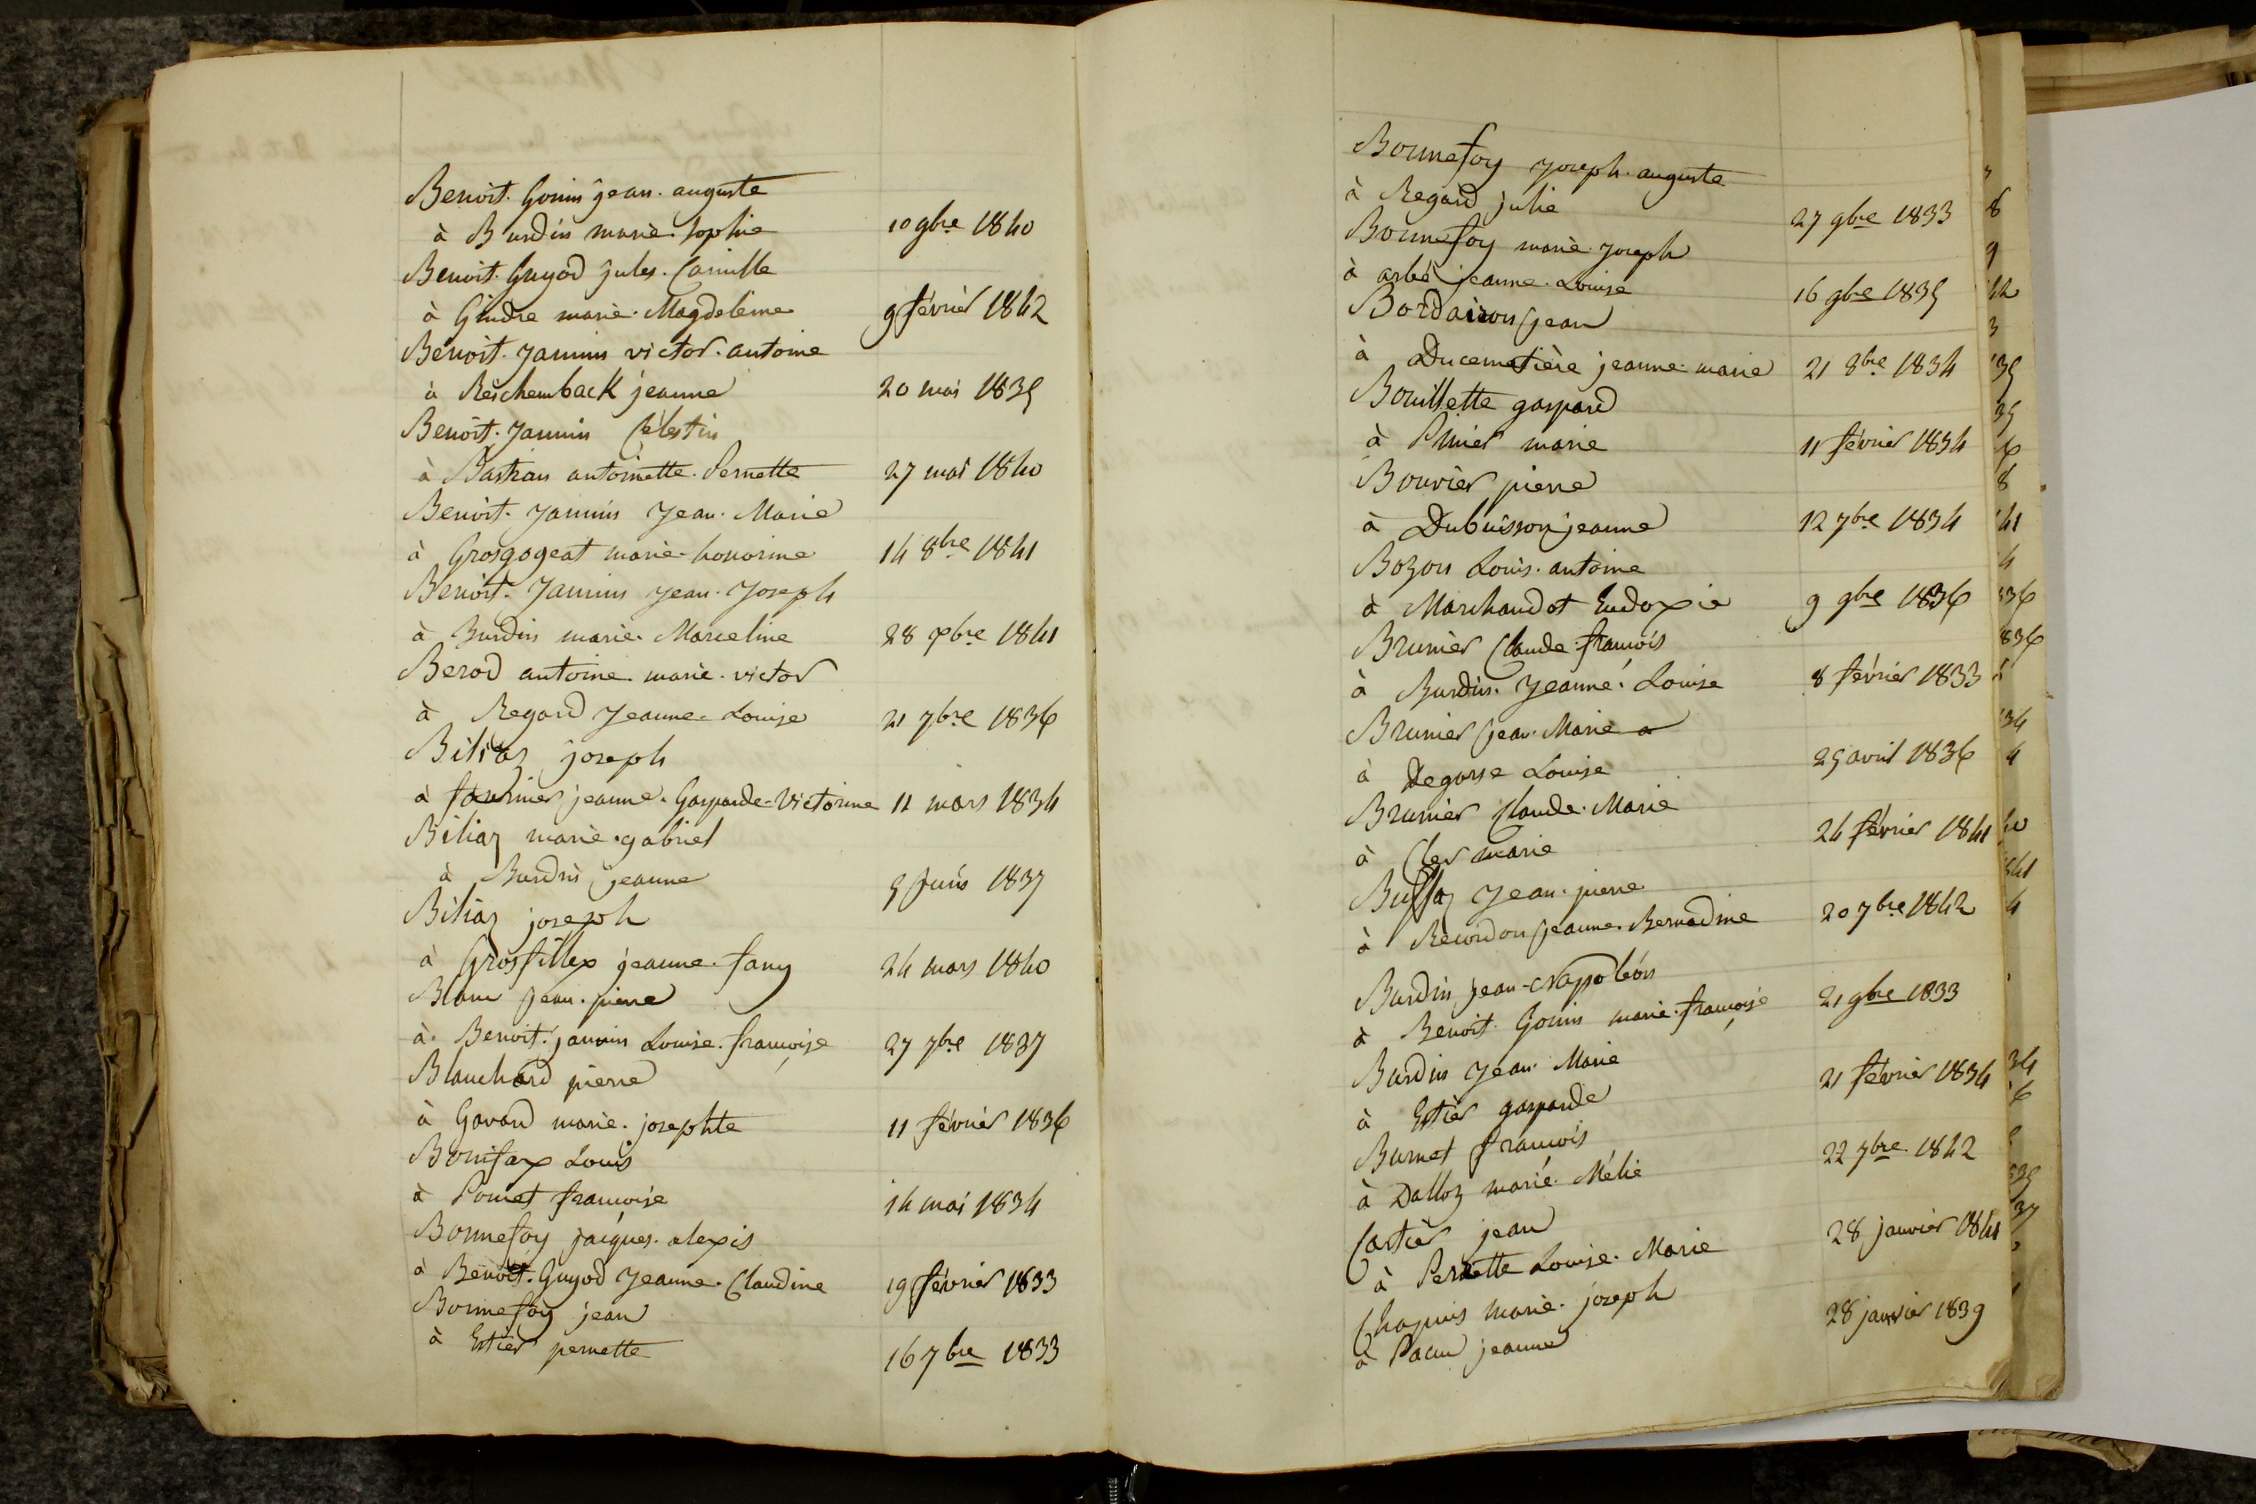 Benoit. Gonin jean. auguste
à Burdin marie. sophie 10 9bre 1840
Benoit. Guyod jules. Camille
à Gindre marie. Magdeleine 9 février 1842
Benoit. Jannin victor. antoine
à Reschemback jeanne 20 mai 1835
Benoit. Jannin Célestin
à Bastian antoinette. Pernette 27 mai 1840
Benoit. Jannin Jean. Marie
à Grosgogeat marie. honorine 14 8bre 1841
Benoit. Jannin Jean. Joseph
à Burdin marie. Marceline 28 xbre 1841
Berod antoine. marie. victor
à Regard Jeanne. Louise 21 7bre 1836
Biliaz joseph
à fournier jeanne. Gasparde-Victorine 11 mars 1834
Biliaz marie. gabriel
à Burdin jeanne 5 juin 1837
Biliaz joseph
à Grosfillex jeanne. fany 24 mars 1840
Blanc jean. pierre
à Benoit. jannin Louise. françoise 27 7bre 1837
Blanchard pierre
à Gavard marie. josephte 11 février 1836
Bonifax Louis
à Poncet françoise 14 mai 1834
Bonnefoy jacques. alexis
à Benoit. Guyod Jeanne. Claudine 19 février 1833
Bonnefoy jean
à Estier pernette 16 7bre 1833
Bonnefoy Joseph. auguste
à Regard julie 27 9bre 1833
Bonnefoy marie. Joseph
à arbé jeanne. Louise 16 9bre 1835
Bordairon jean
à Ducemetière jeanne. marie 21 8bre 1834
Bouillette gaspard
à Prunier marie 11 février 1834
Bouvier pierre
à Dubuisson jeanne 12 7bre 1834
Bozon Louis. antoine
à Marchandot Eudoxie 9 9bre 1836
Brunier Claude. françois
à Burdin. Jeanne. Louise 8 février 1833
Brunier jean. Marie
à Degorse Louise 25 avril 1836
Brunier Claude. Marie
à Cler marie 24 février 1841
Buffaz Jean. pierre
à Recordon jeanne. Bernadine 20 7bre 1842
Burdin jean-Napoléon
à Benoit. Gonin marie. françoise 21 9bre 1833
Burdin Jean. Marie
à Estier gasparde 21 février 1834
Burnet françois
à Dalloz marie. Mélie 22 7bre 1842
Cartier jean
à Pernette Louise. Marie 28 janvier 1841
Chapuis marie. joseph
à Pacu jeanne 28 janvier 1839